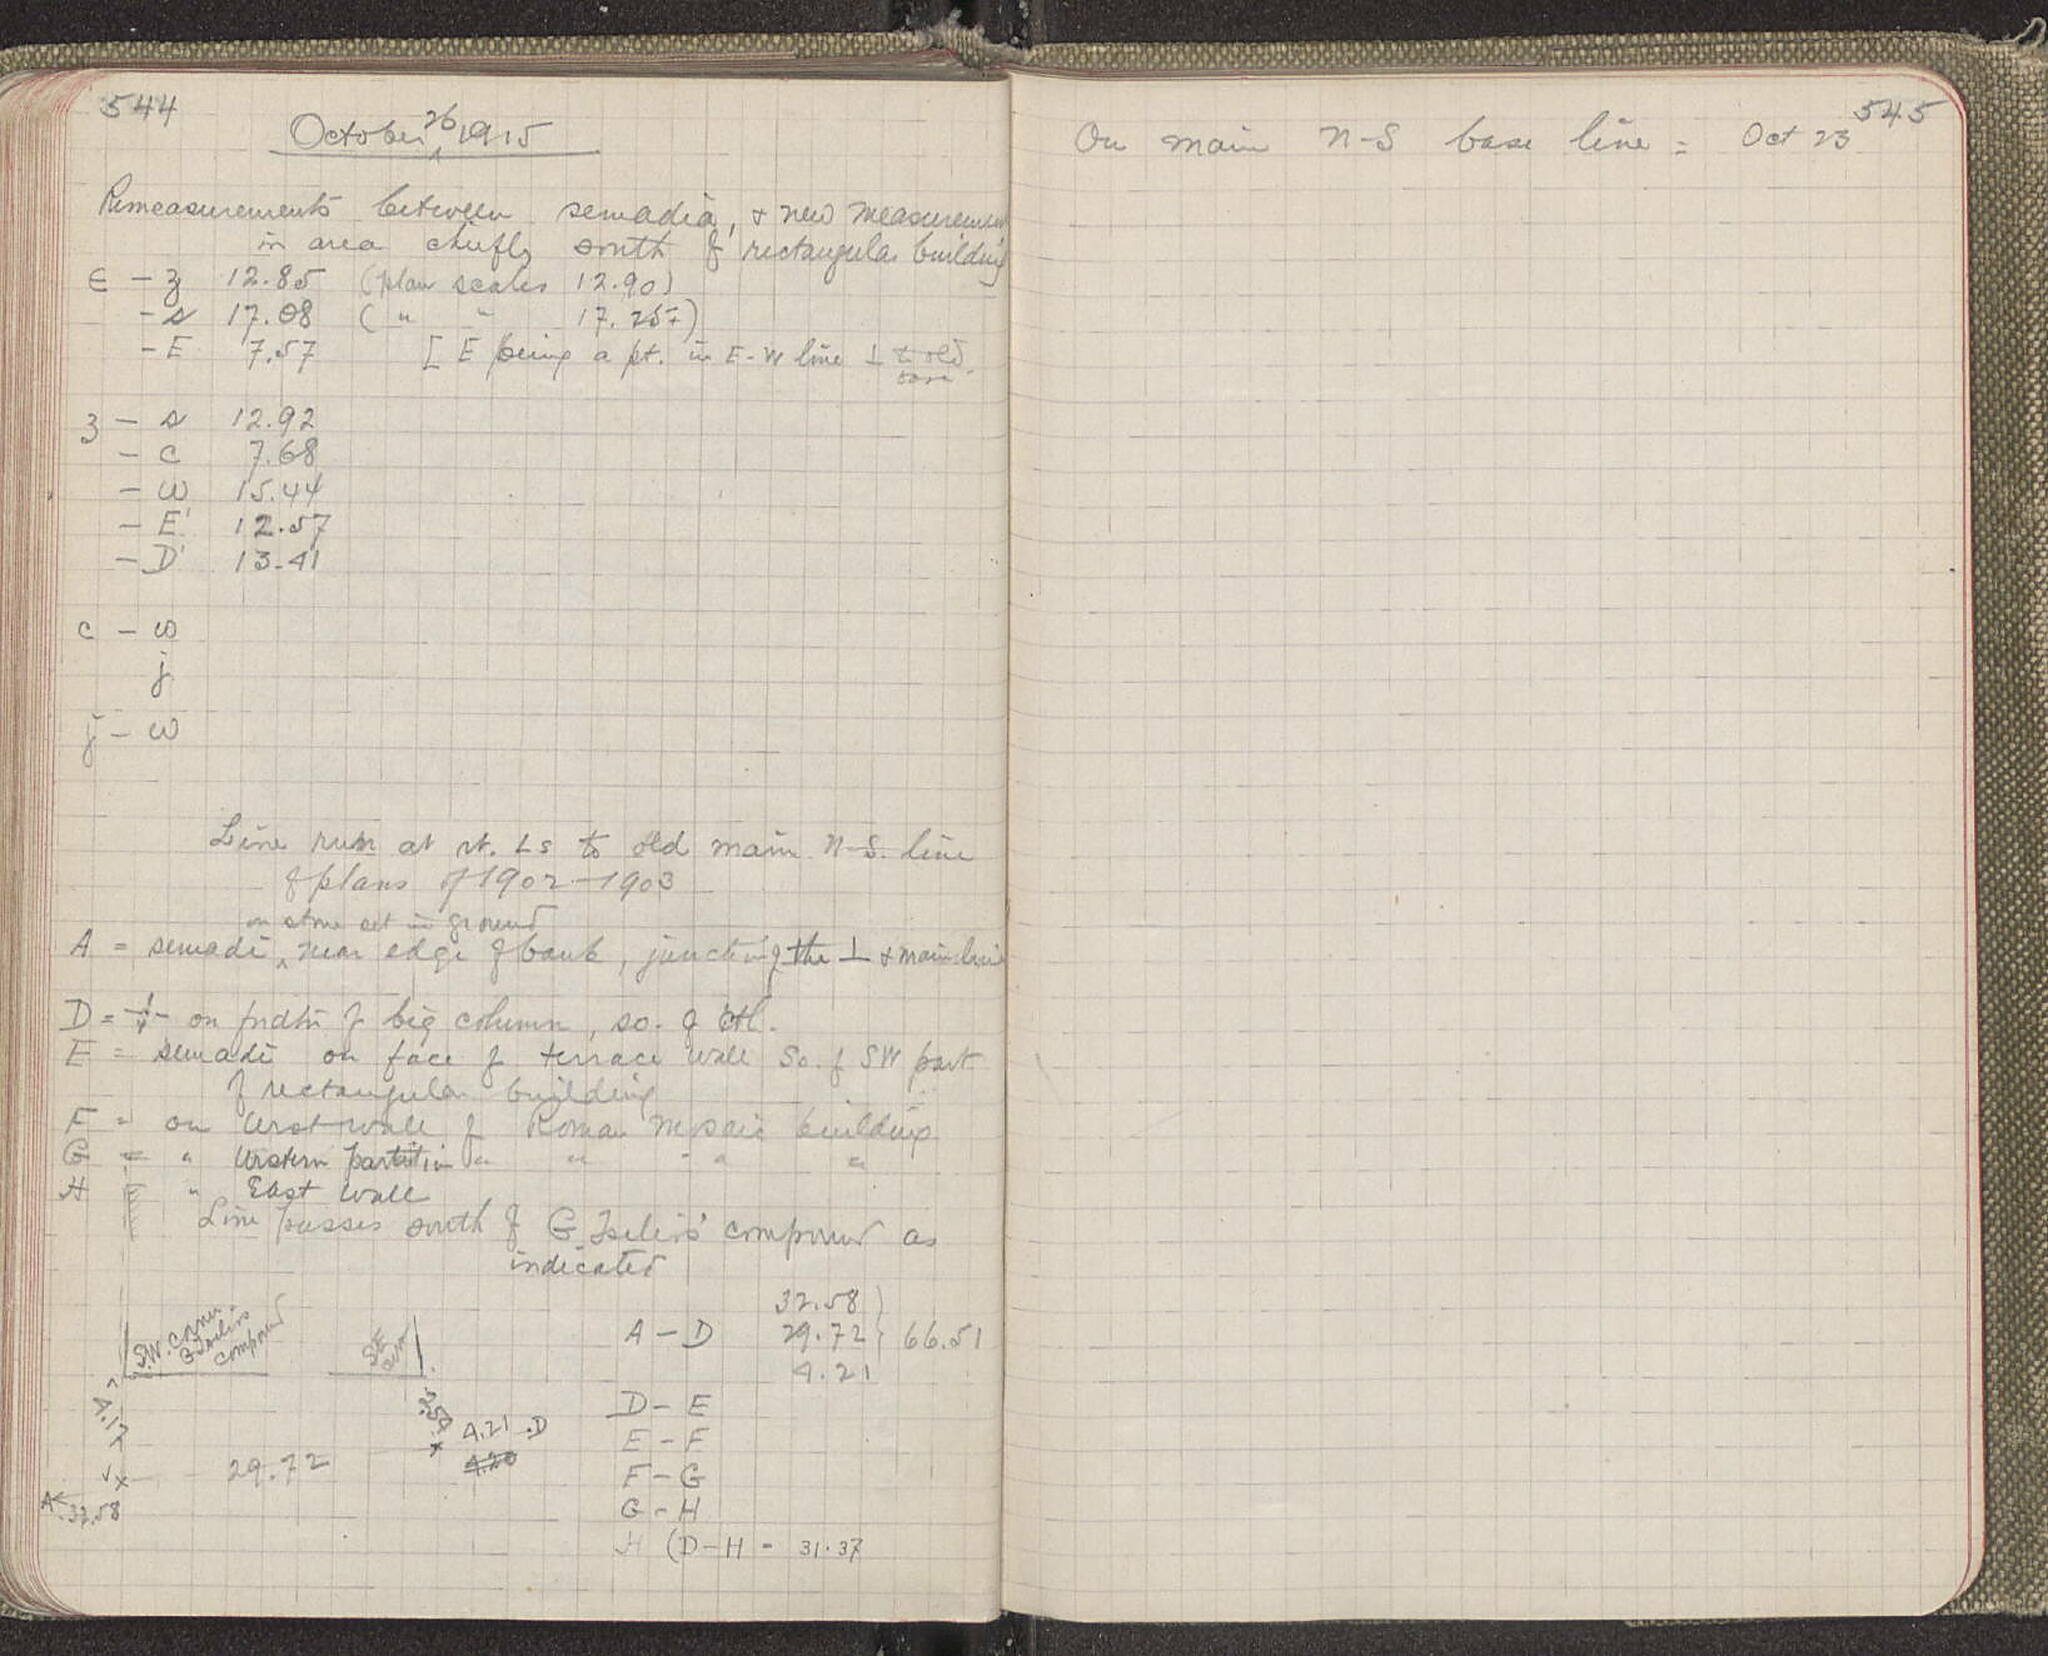 544
October 26 1915
Remeasurements between semadia, & new measurements
in area chiefly south of rectangular building
ε - z 12.85 (plan scales 12.90)
- s 17.08 ( " " 17.257)
- E 7.57 [ E being a pt. in E-W line ⊥ to old
base
z - s 12.92
- c 7.68
- w 15.44
- E' 12.57
- D' 13.41
c - w
j
j - w
Line run at rt. Ls to old main N-S. line
of plans of 1902-1903
on stone set in ground
A = semadi ^ near edge of bank, junct. of the ⊥ & main line
D = on fndtn of big column, so. of
E = semadi on face of terrace wall So. of SW part
of rectangular building
F = on West wall of Roman Mosaic building
G = " Western partition " " " "
H = " East wall
Line passes south of G Tselios' compound as
indicated
S.W. Corner
G Tselios
compound
SE
4.17
.250
4.21 .D
4.20
29.72
A 32.58
32.58
A - D 29.72 } 66.51
4.21
D - E
E - F
F - G
G - H
H (D-H = 31.37
545
On main N-S base line = Oct 23